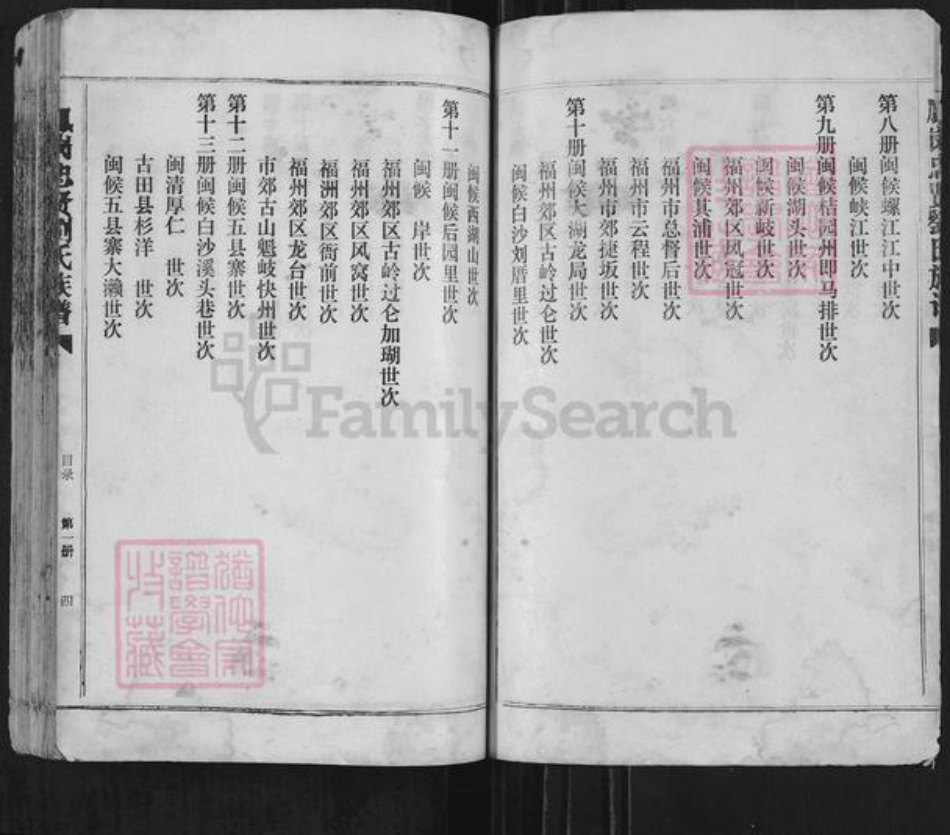 第八册闽候螺江江中世次
闽候峡江世次
第九册闽候桔园州即马排世次
闽候湖头世次
闽候新岐世次
福州郊区风冠世次
闽候其浦世次
福州市总督后世次
福州市云程世次
福州市郊捷坂世次
第十册闽候大湖龙局世次
福州郊区古岭过仑世次
闽候白沙刘厝里世次
闽候西湖山世次
第十一册闽候后园里世次
闽候 岸世次
福州郊区古岭过仑加瑚世次
福州郊区风窝世次
福洲郊区衙前世次
福州郊区龙台世次
市郊古山魁岐快州世次
第十二册闽候五县寨世次
第十三册闽候白沙溪头巷世次
闽清厚仁 世次
古田县杉洋 世次
闽候五县寨大濑世次
忠贤刘氏族谱
目录 第一册 四
FamilySearch
谱学会
收藏